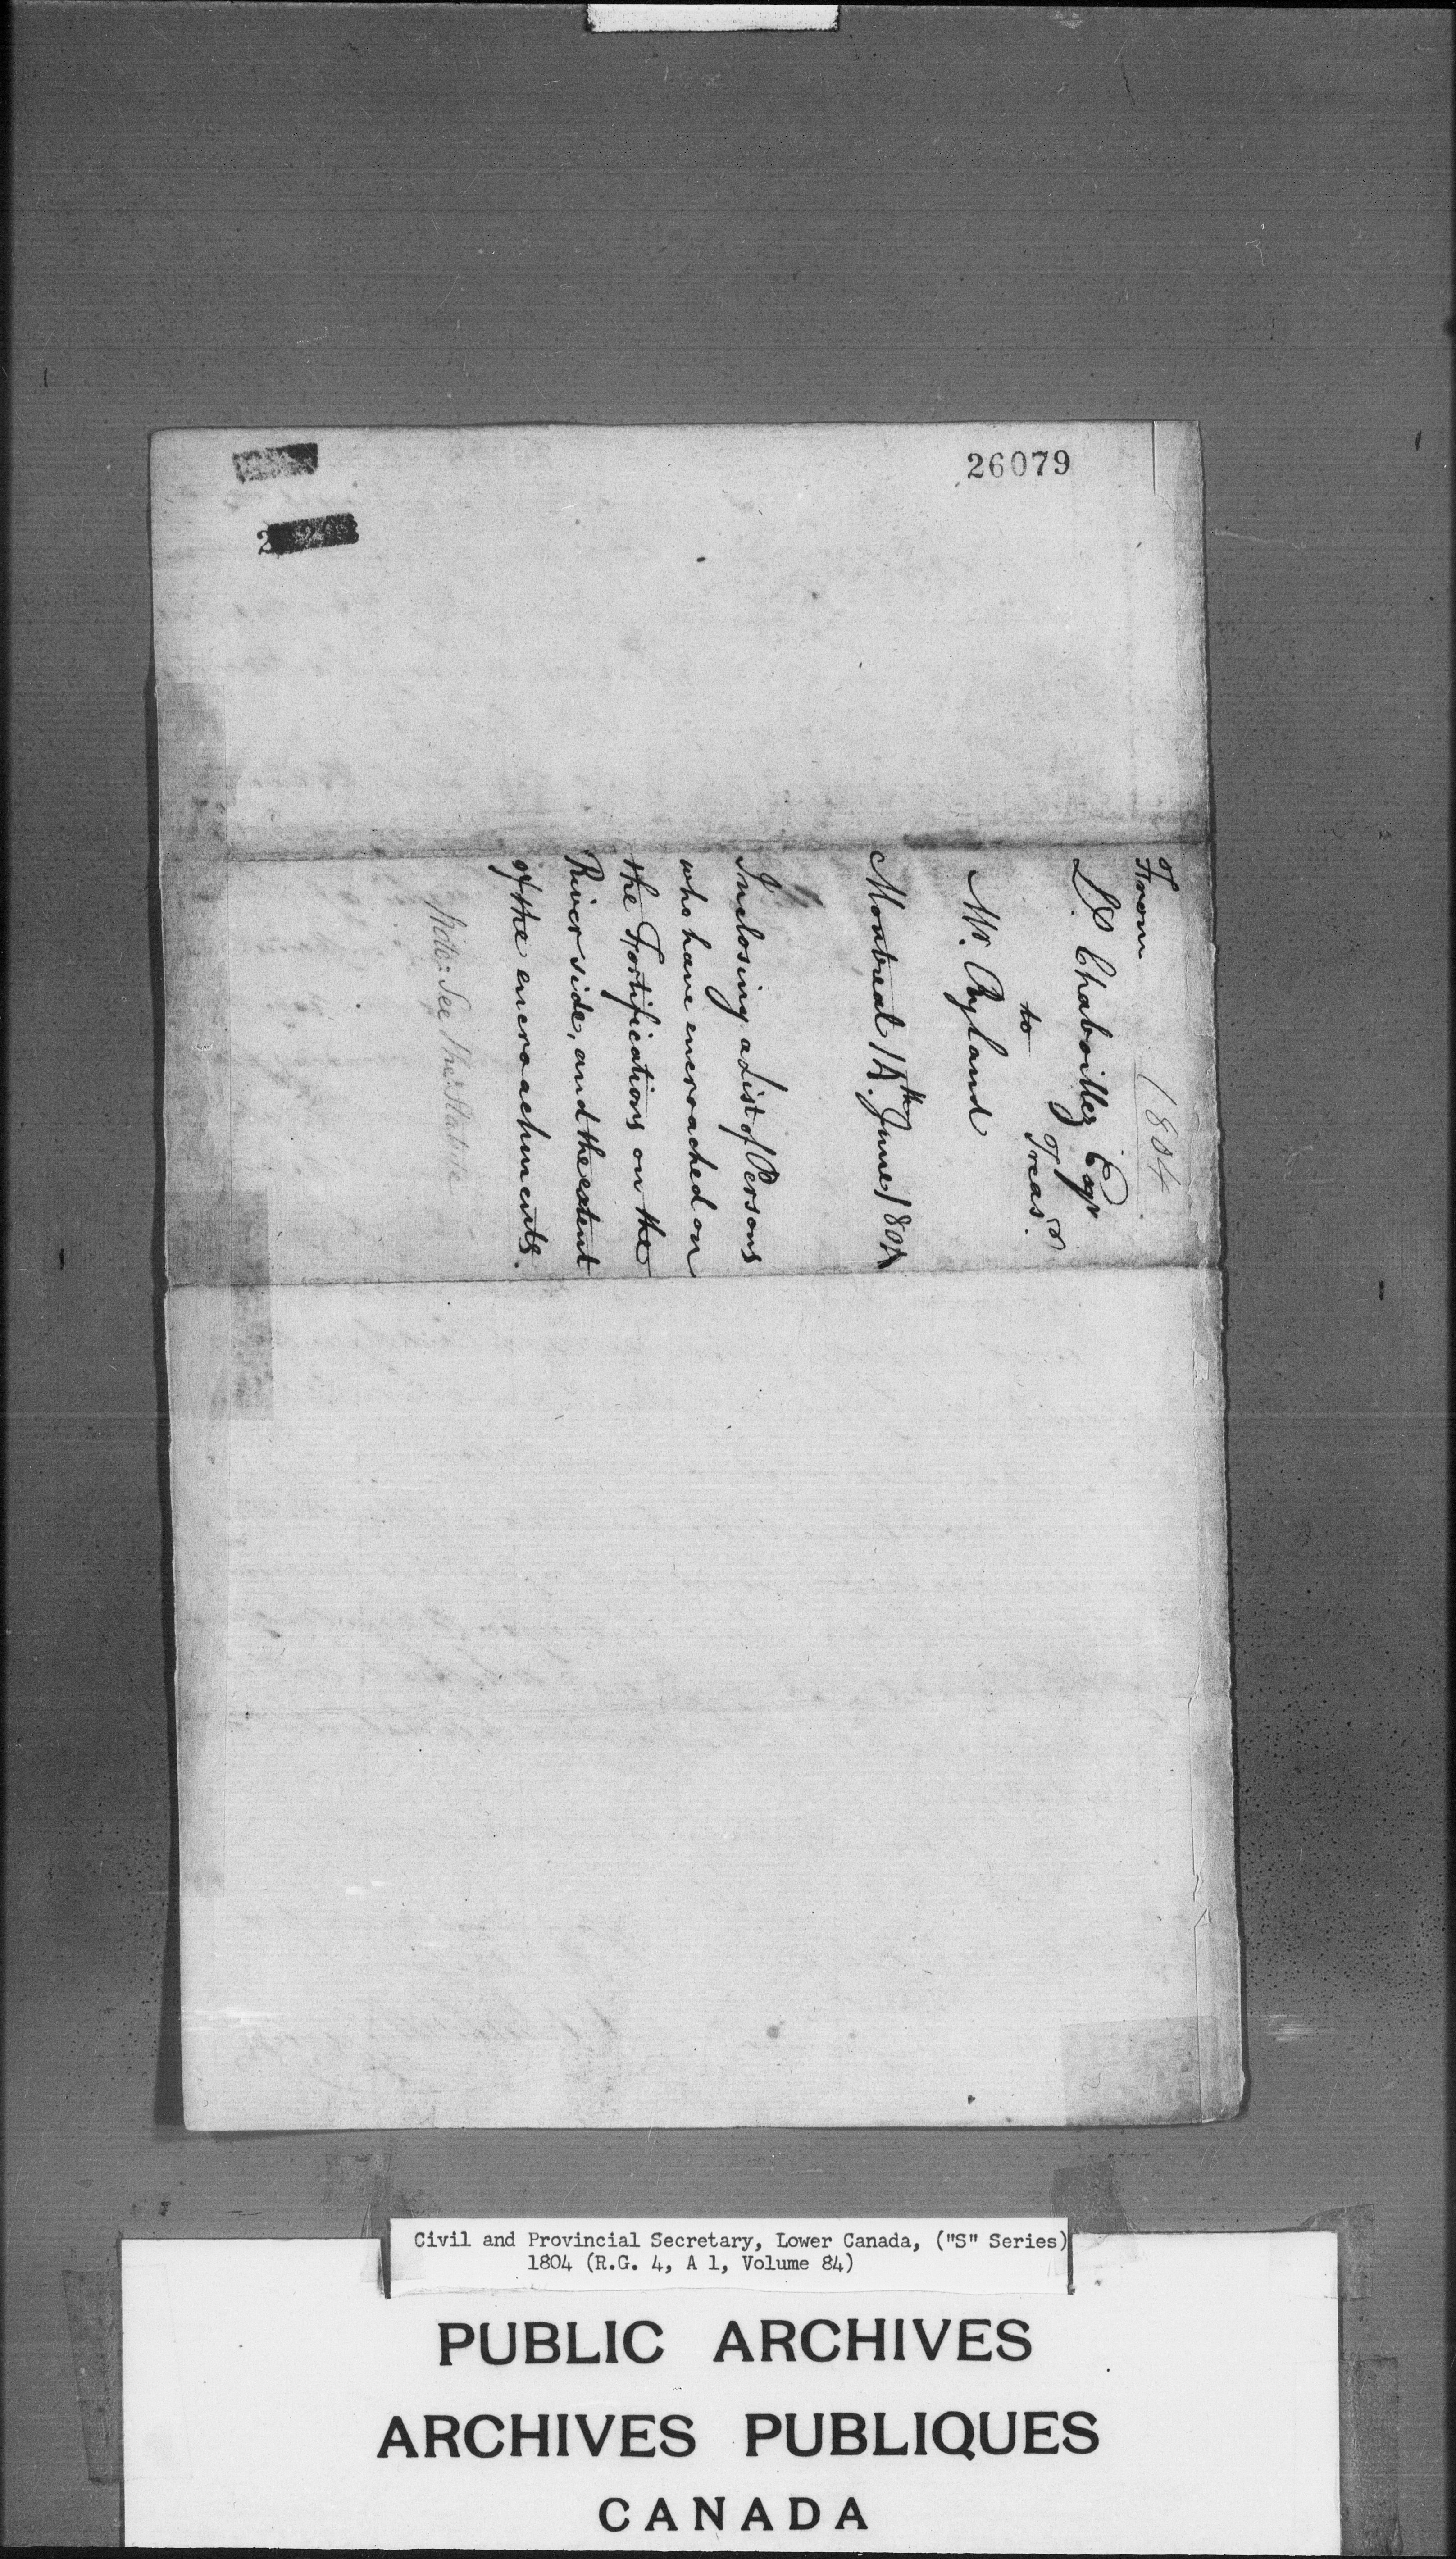 26079
1804
From
Ls. Chaboillez Esqr
Treasr.
to
Mr. Ryland
Montreal 14th. June 1804
Inclosing a List of Persons
who have encroached on
the Fortifications on the
River side, and the extent
of the encroachments.
Note: See the Statute
Civil and Provincial Secretary, Lower Canada, ("S" Series)
1804 (R.G. 4, A 1, Volume 84)
PUBLIC ARCHIVES
ARCHIVES PUBLIQUES
CANADA